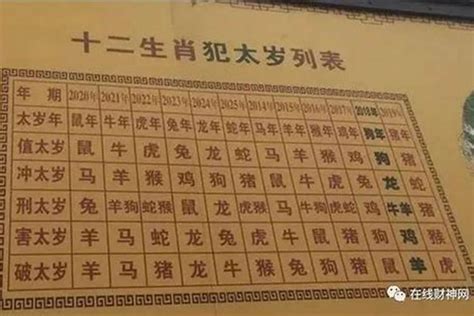 十二生肖犯太岁列表
年期 2020年 2021年 2022年 2023年 2024年 2025年 2014年 2015年 2016年 2017年 2018年 2019年
太岁年 鼠年 牛年 虎年 兔年 龙年 蛇年 马年 羊年 猴年 鸡年 狗年 猪年
值太岁 鼠 牛 虎 兔 龙 蛇 马 羊 猴 鸡 狗 猪
冲太岁 马 羊 猴 鸡 狗 猪 鼠 牛 虎 兔 龙 蛇
刑太岁 兔 羊狗 蛇猴 鼠 龙 虎猴 马 牛狗 鸡 牛羊 猪
害太岁 羊 马 蛇 龙 兔 虎 牛 鼠 猪 狗 鸡 猴
破太岁 鸡 龙 猪 马 牛 猴 兔 狗 蛇 鼠 羊 虎
在线财神网